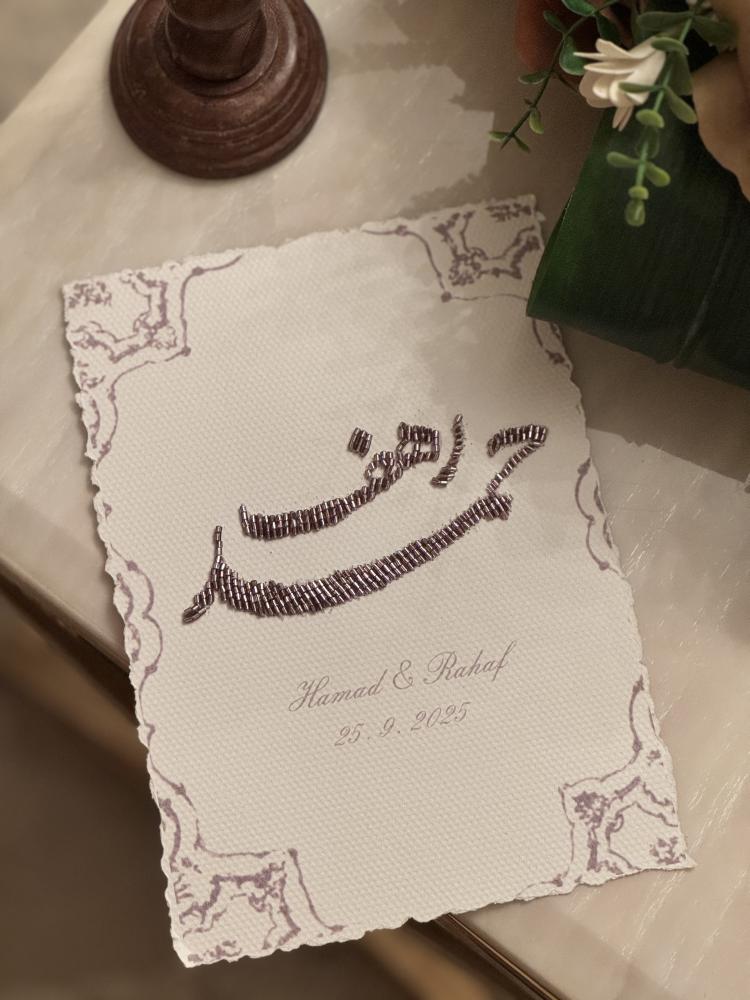 رهف
حمد
Hamad & Rahaf
25.9.2025